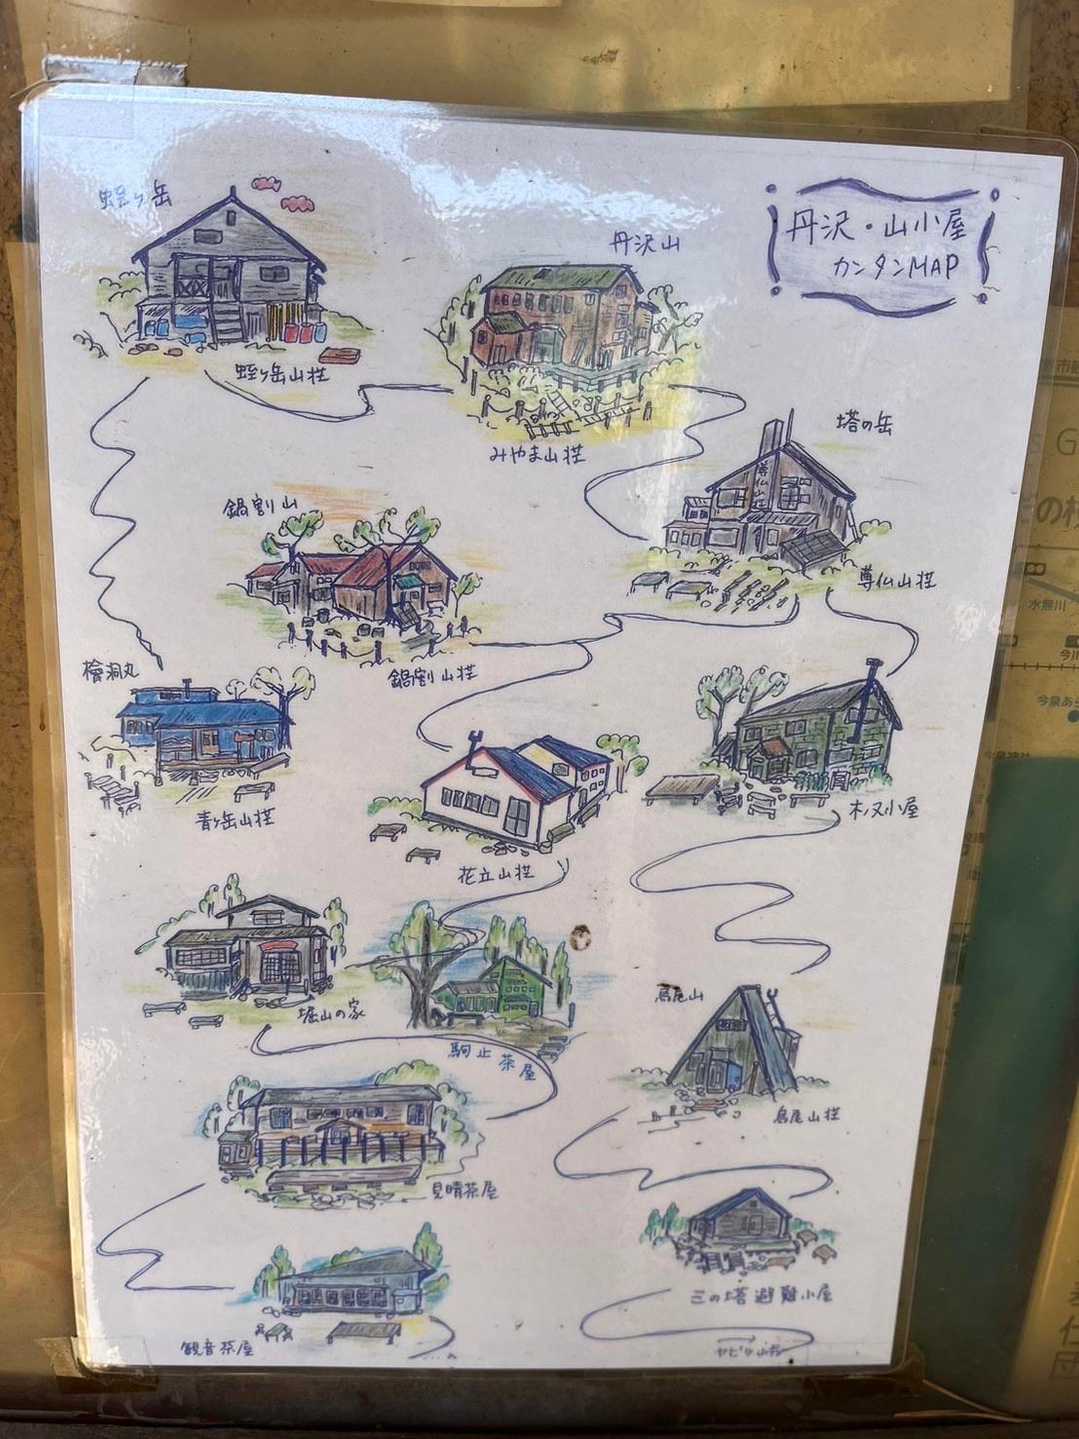 丹沢・山小屋
カンタンMAP
蛭ヶ岳
蛭ヶ岳山荘
丹沢山
みやま山荘
塔の岳
尊仏山荘
尊仏山荘
鍋割山
鍋割山荘
檜洞丸
青ヶ岳山荘
花立山荘
木ノ又小屋
堀山の家
駒止茶屋
鳥尾山
鳥尾山荘
見晴茶屋
三の塔避難小屋
観音茶屋
水無川